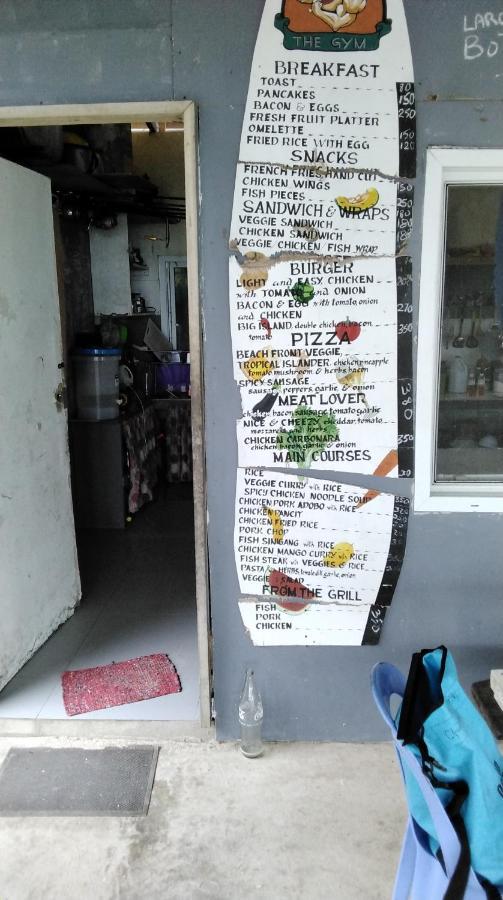 THE GYM
BREAKFAST
TOAST 80
PANCAKES 150
BACON & EGGS 250
FRESH FRUIT PLATTER
OMELETTE 150
FRIED RICE WITH EGG 120
SNACKS
FRENCH FRIES HAND CUT
CHICKEN WINGS
FISH PIECES
SANDWICH & WRAPS
VEGGIE SANDWICH
CHICKEN SANDWICH
VEGGIE CHICKEN FISH WRAP
BURGER
LIGHT and EASY, CHICKEN
with TOMATO and ONION
BACON & EGG with tomato, onion
and CHICKEN
BIG ISLAND, double chicken, bacon
tomato
PIZZA
BEACH FRONT VEGGIE,
TROPICAL ISLANDER, chicken pineapple
tomato mushroom & herbs bacon
SPICY SAUSAGE
sausage, peppers, garlic & onion
MEAT LOVER
chicken, bacon sausage tomato garlic
NICE & CHEEZY cheddar, tomato
mozzarella and herbs
CHICKEN CARBONARA 350
chicken bacon garlic & onion
MAIN COURSES
RICE
VEGGIE CURRY with RICE
SPICY CHICKEN NOODLE SOUP
CHICKEN PORK ADOBO with RICE
CHICKEN PANCIT
CHICKEN FRIED RICE
PORK CHOP
FISH SINIGANG with RICE
CHICKEN MANGO CURRY with RICE
FISH STEAK with VEGGIES & RICE
PASTA with HERBS, tomato dill garlic, onion
VEGGIE SALAD
FROM THE GRILL
FISH
PORK
CHICKEN